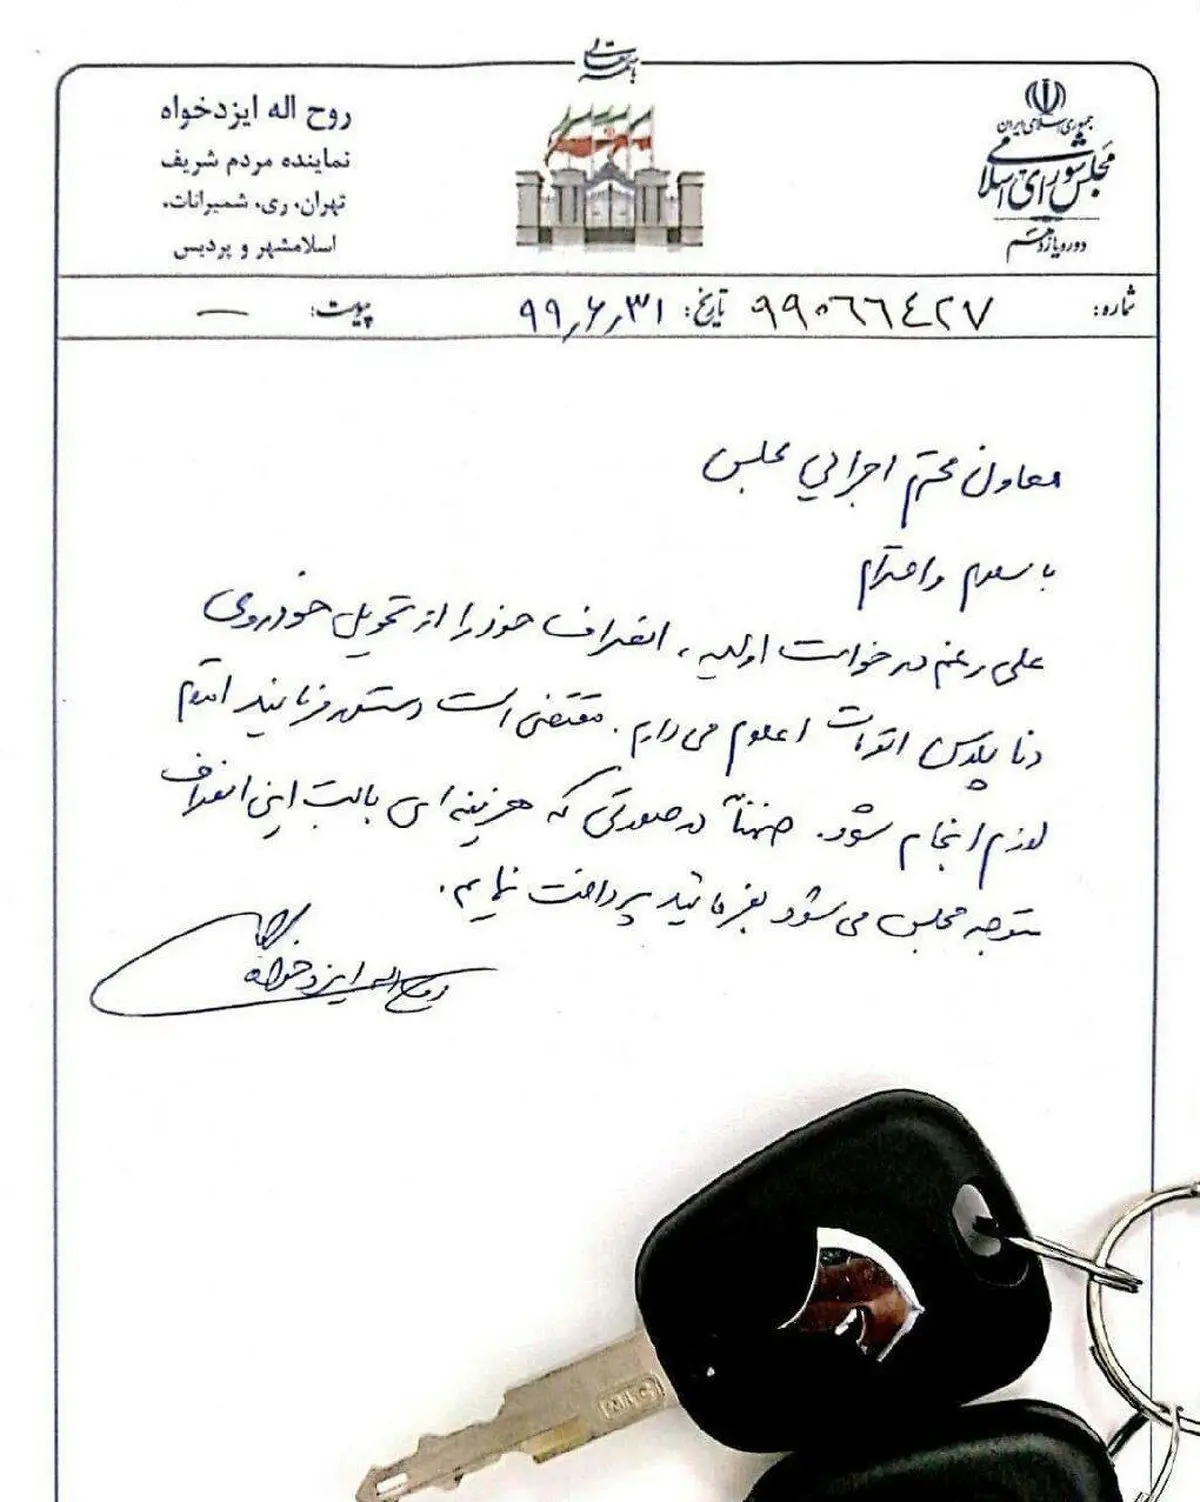 باسمه تعالی
جمهوری اسلامی ایران
مجلس شورای اسلامی
دوره یازدهم
روح اله ایزدخواه
نماینده مردم شریف
تهران، ری، شمیرانات،
اسلامشهر و پردیس
شماره: ۹۹۰۶۶۴۲۷ تاریخ: ۹۹٫۶٫۳۱ پیوست: —
معاون محترم اجرائی مجلس
با سلام و احترام
علی رغم درخواست اولیه، انصراف خود را از تحویل خودروی
دنا پلاس اتومات اعلام می دارم. مقتضی است دستور فرمائید اقدام
لازم انجام شود. ضمناً در صورتی که هزینه ای بابت این انصراف
متوجه مجلس می شود بفرمائید پرداخت نمایم.
روح اله ایزدخواه